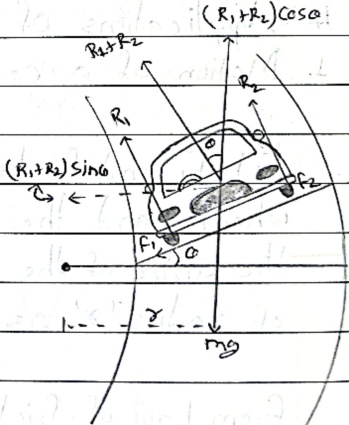 (R₁+R₂)Cosθ
R₁+R₂
R₂
R₁
θ
(R₁+R₂)Sinθ
F₂
F₁
θ
r
mg